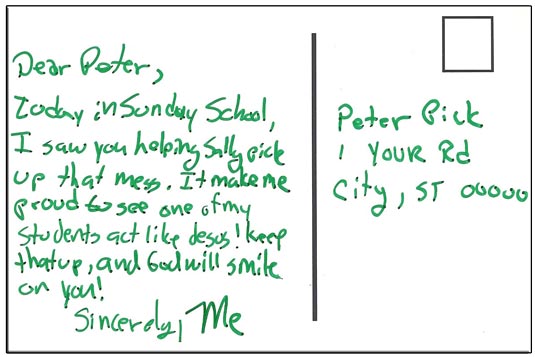 Dear Peter,
Today in Sunday School,
I saw you helping Sally pick
up that mess. It make me
proud to see one of my
students act like Jesus! Keep
that up, and God will smile
on you!
Sincerely, Me
Peter Pick
1 YOUR Rd
City, ST 00000